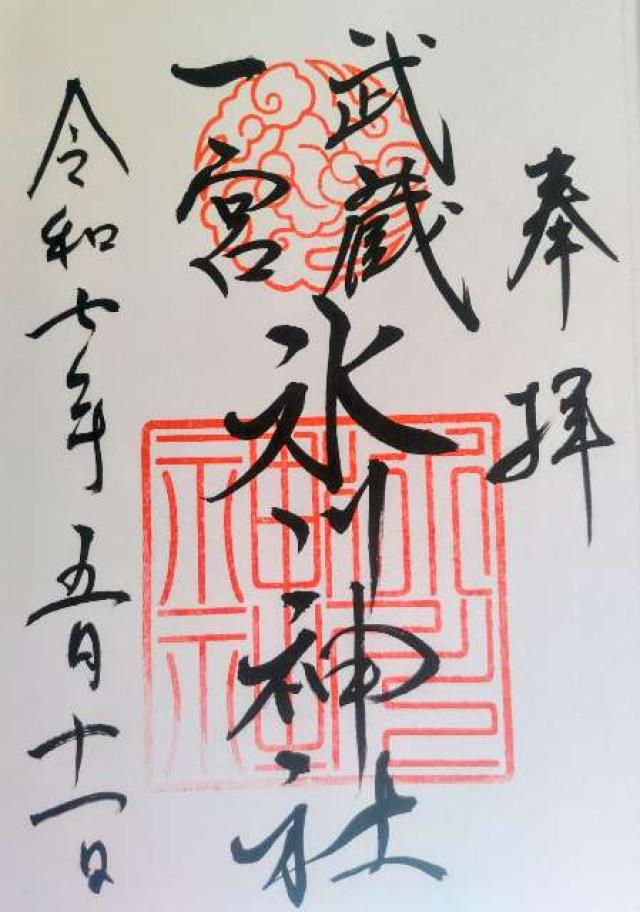 奉拝
武蔵
一宮
氷川神社
令和七年五月十一日